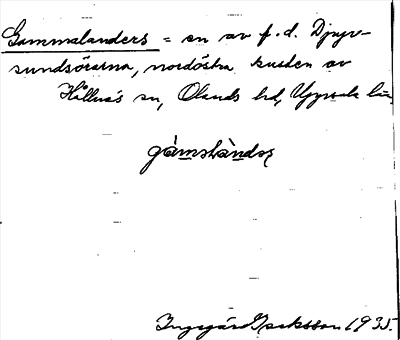 Gammalanders = en av f.d. Djup-
sundsörarna, nordöstra kusten av
Hållnäs sn, Olands hd, Uppsala län
Ingegärd Isaksson 1935.